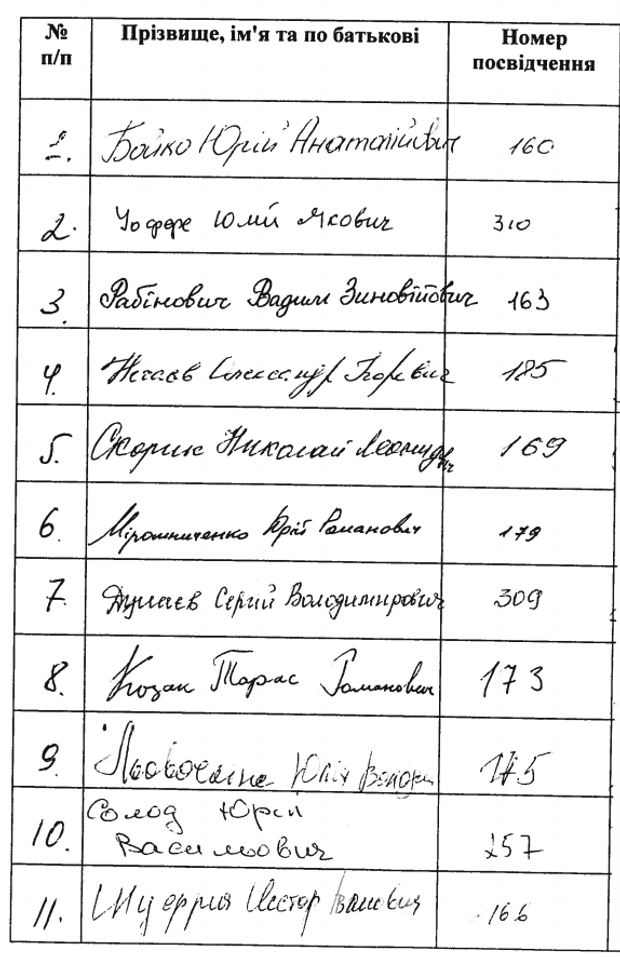 № п/п Прізвище, ім'я та по батькові Номер посвідчення
1. Бойко Юрій Анатолійович 160
2. Іоффе Юлій Якович 310
3. Рабінович Вадим Зиновійович 163
4. Нечаєв Олександр Ігоревич 185
5. Скорик Николай Леонидович 169
6. Мірошниченко Юрій Романович 179
7. Дунаєв Сергій Володимирович 309
8. Козак Тарас Романович 173
9. Льовочкіна Юлія 175
10. Солод Юрій
Васильович 257
11. Шуфрич Нестор Іванович 166